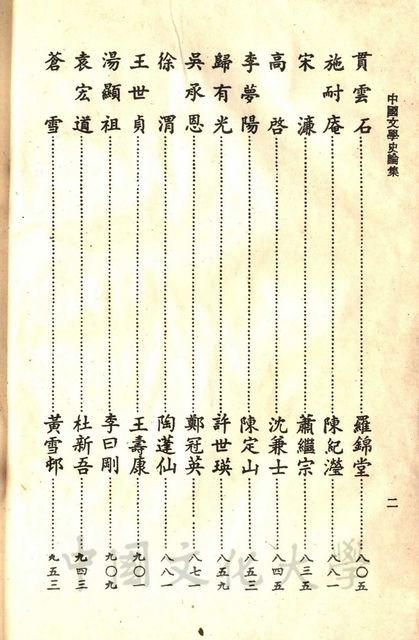 中國文學史論集
二
貫雲石 羅錦堂 八〇五
施耐庵 陳紀瀅 八八一
宋濂 蕭繼宗 八三五
高啓 沈兼士 八四五
李夢陽 陳定山 八五三
歸有光 許世瑛 八五九
吳承恩 鄭冠英 八七一
徐渭 陶蓬仙 八八一
王世貞 王壽康 九〇一
湯顯祖 李曰剛 九〇九
袁宏道 杜新吾 九四三
蒼雪 黃雪邨 九五三
中國文化大學